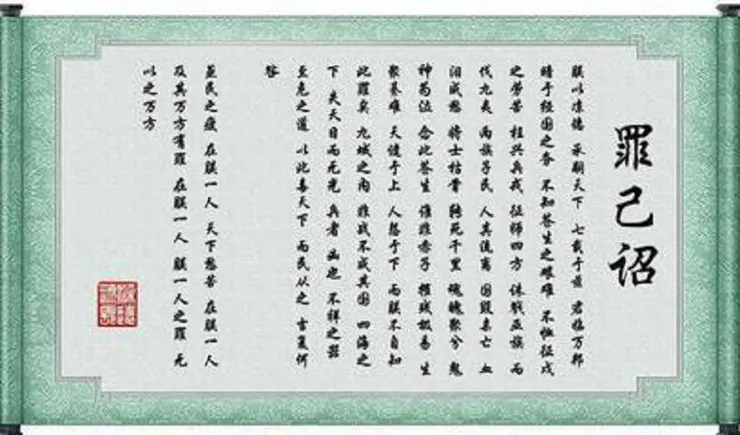 罪己诏
朕以凉德 承嗣天下 七载于兹 君临万邦
暗于经国之务 不知苍生之艰难 不恤征戍
之劳苦 枉兴兵戎 征师四方 诛戮亚族 而
伐九夷 两族子民 人其流离 国毁家亡 血
泪成愁 将士枯骨 骋死千里 魂魄聚兮 鬼
神芴泣 念此苍生 谁非赤子 摧残极易 生
聚綦难 天谴于上 人怨于下 而朕不自知
此罪矣 九域之内 非战不成其国 四海之
下 夫天日而无光 兵者 凶也 不祥之器
至危之道 以此毒天下 而民从之 吉复何
咎
至民之瘦 在朕一人 天下愁苦 在朕一人
及其万方有罪 在朕一人 朕一人之罪 无
以之万方